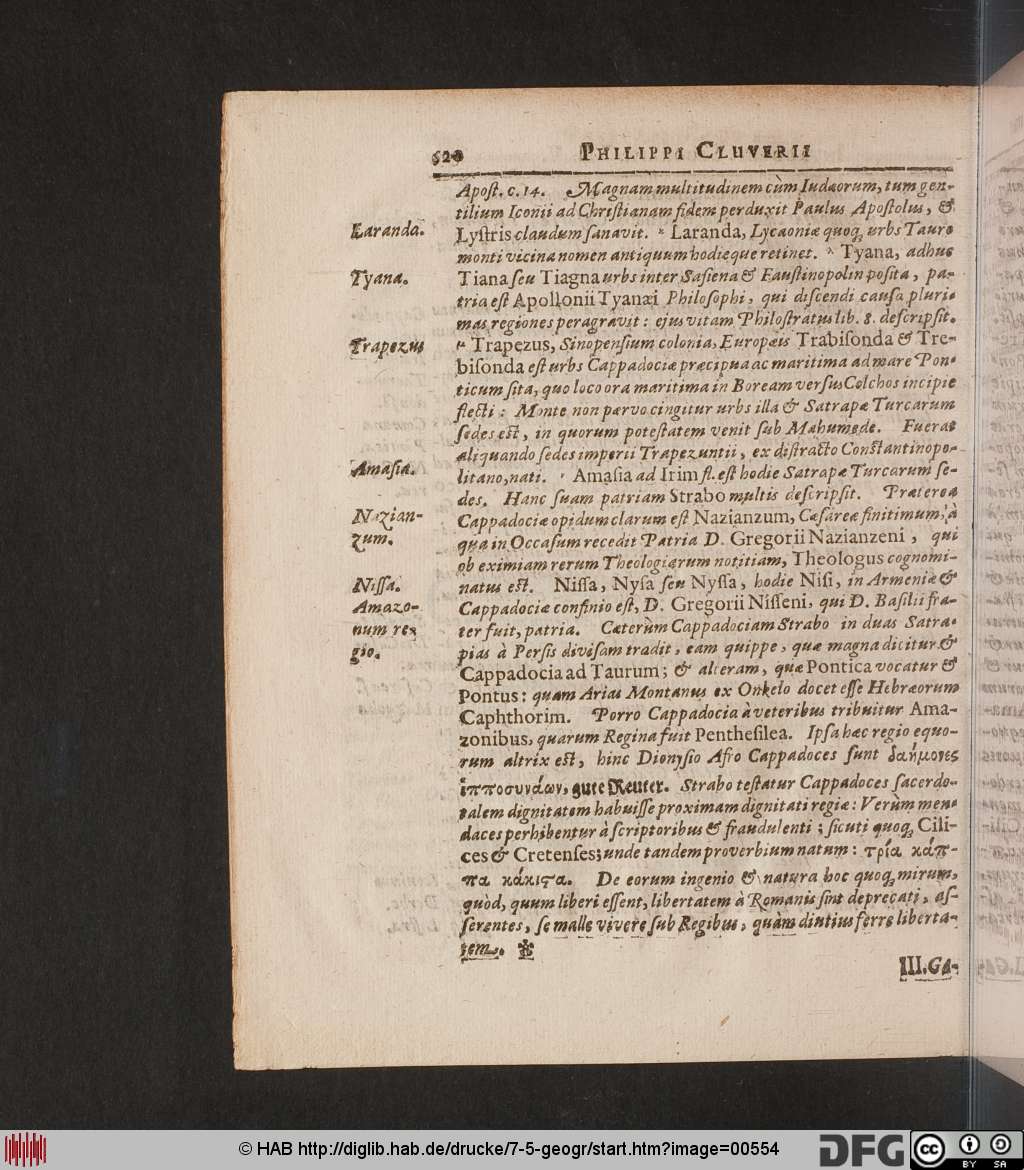 520 PHILIPPI CLUVERII
Apoſt. c. 14. Magnam multitudinem cùm Iudæorum, tum gen-
tilium Iconii ad Chriſtianam fidem perduxit Paulus Apoſtolus, &
Laranda. Lyſtris claudum ſanavit. * Laranda, Lycaoniæ quoq; urbs Tauro
monti vicina nomen antiquum hodieque retinet. * Tyana, adhuc
Tyana. Tiana ſeu Tiagna urbs inter Saſiena & Fauſtinopolin poſita, pa-
tria eſt Apollonii Tyanæi Philoſophi, qui diſcendi cauſa pluri-
mas regiones peragravit: ejus vitam Philoſtratus lib. 8. deſcripſit.
Trapezus * Trapezus, Sinopenſium colonia, Europæis Trabiſonda & Tre-
biſonda eſt urbs Cappadociæ præcipua ac maritima ad mare Pon-
ticum ſita, quo loco ora maritima in Boream verſus Colchos incipit
flecti: Monte non parvo cingitur urbs illa & Satrapæ Turcarum
ſedes eſt, in quorum poteſtatem venit ſub Mahumede. Fuerat
aliquando ſedes imperii Trapezuntii, ex diſtracto Conſtantinopo-
Amaſia. litano, nati. * Amaſia ad Irim fl. eſt hodie Satrapæ Turcarum ſe-
des. Hanc ſuam patriam Strabo multis deſcripſit. Præterea
Nazian- Cappadociæ opidum clarum eſt Nazianzum, Cæſareæ finitimum, à
zum. qua in Occaſum recedit Patria D. Gregorii Nazianzeni, qui
ob eximiam rerum Theologiarum notitiam, Theologus cognomi-
Niſſa. natus eſt. Niſſa, Nyſa ſeu Nyſſa, hodie Niſi, in Armeniæ &
Amazo- Cappadociæ confinio eſt, D. Gregorii Niſſeni, qui D. Baſilii fra-
num re- ter fuit, patria. Cæterùm Cappadociam Strabo in duas Satra-
gio. pias à Perſis diviſam tradit, eam quippe, quæ magna dicitur &
Cappadocia ad Taurum; & alteram, quæ Pontica vocatur &
Pontus: quam Arias Montanus ex Onkelo docet eſſe Hebræorum
Caphthorim. Porro Cappadocia à veteribus tribuitur Ama-
zonibus, quarum Regina fuit Pentheſilea. Ipſa hæc regio equo-
rum altrix eſt, hinc Dionyſio Afro Cappadoces ſunt δαήμονες
ἱπποσυνάων, gute Reuter. Strabo teſtatur Cappadoces ſacerdo-
talem dignitatem habuiſſe proximam dignitati regiæ: Verùm men-
daces perhibentur à ſcriptoribus & fraudulenti; ſicuti quoq; Cili-
ces & Cretenſes; unde tandem proverbium natum: τρία κάπ-
πα κάκιϛα. De eorum ingenio & natura hoc quoq; mirum,
quòd, quum liberi eſſent, libertatem à Romanis ſint deprecati, aſ-
ſerentes, ſe malle vivere ſub Regibus, quàm diutius ferre liberta-
tem. *
III. GA-
© HAB http://diglib.hab.de/drucke/7-5-geogr/start.htm?image=00554
DFG
cc BY SA